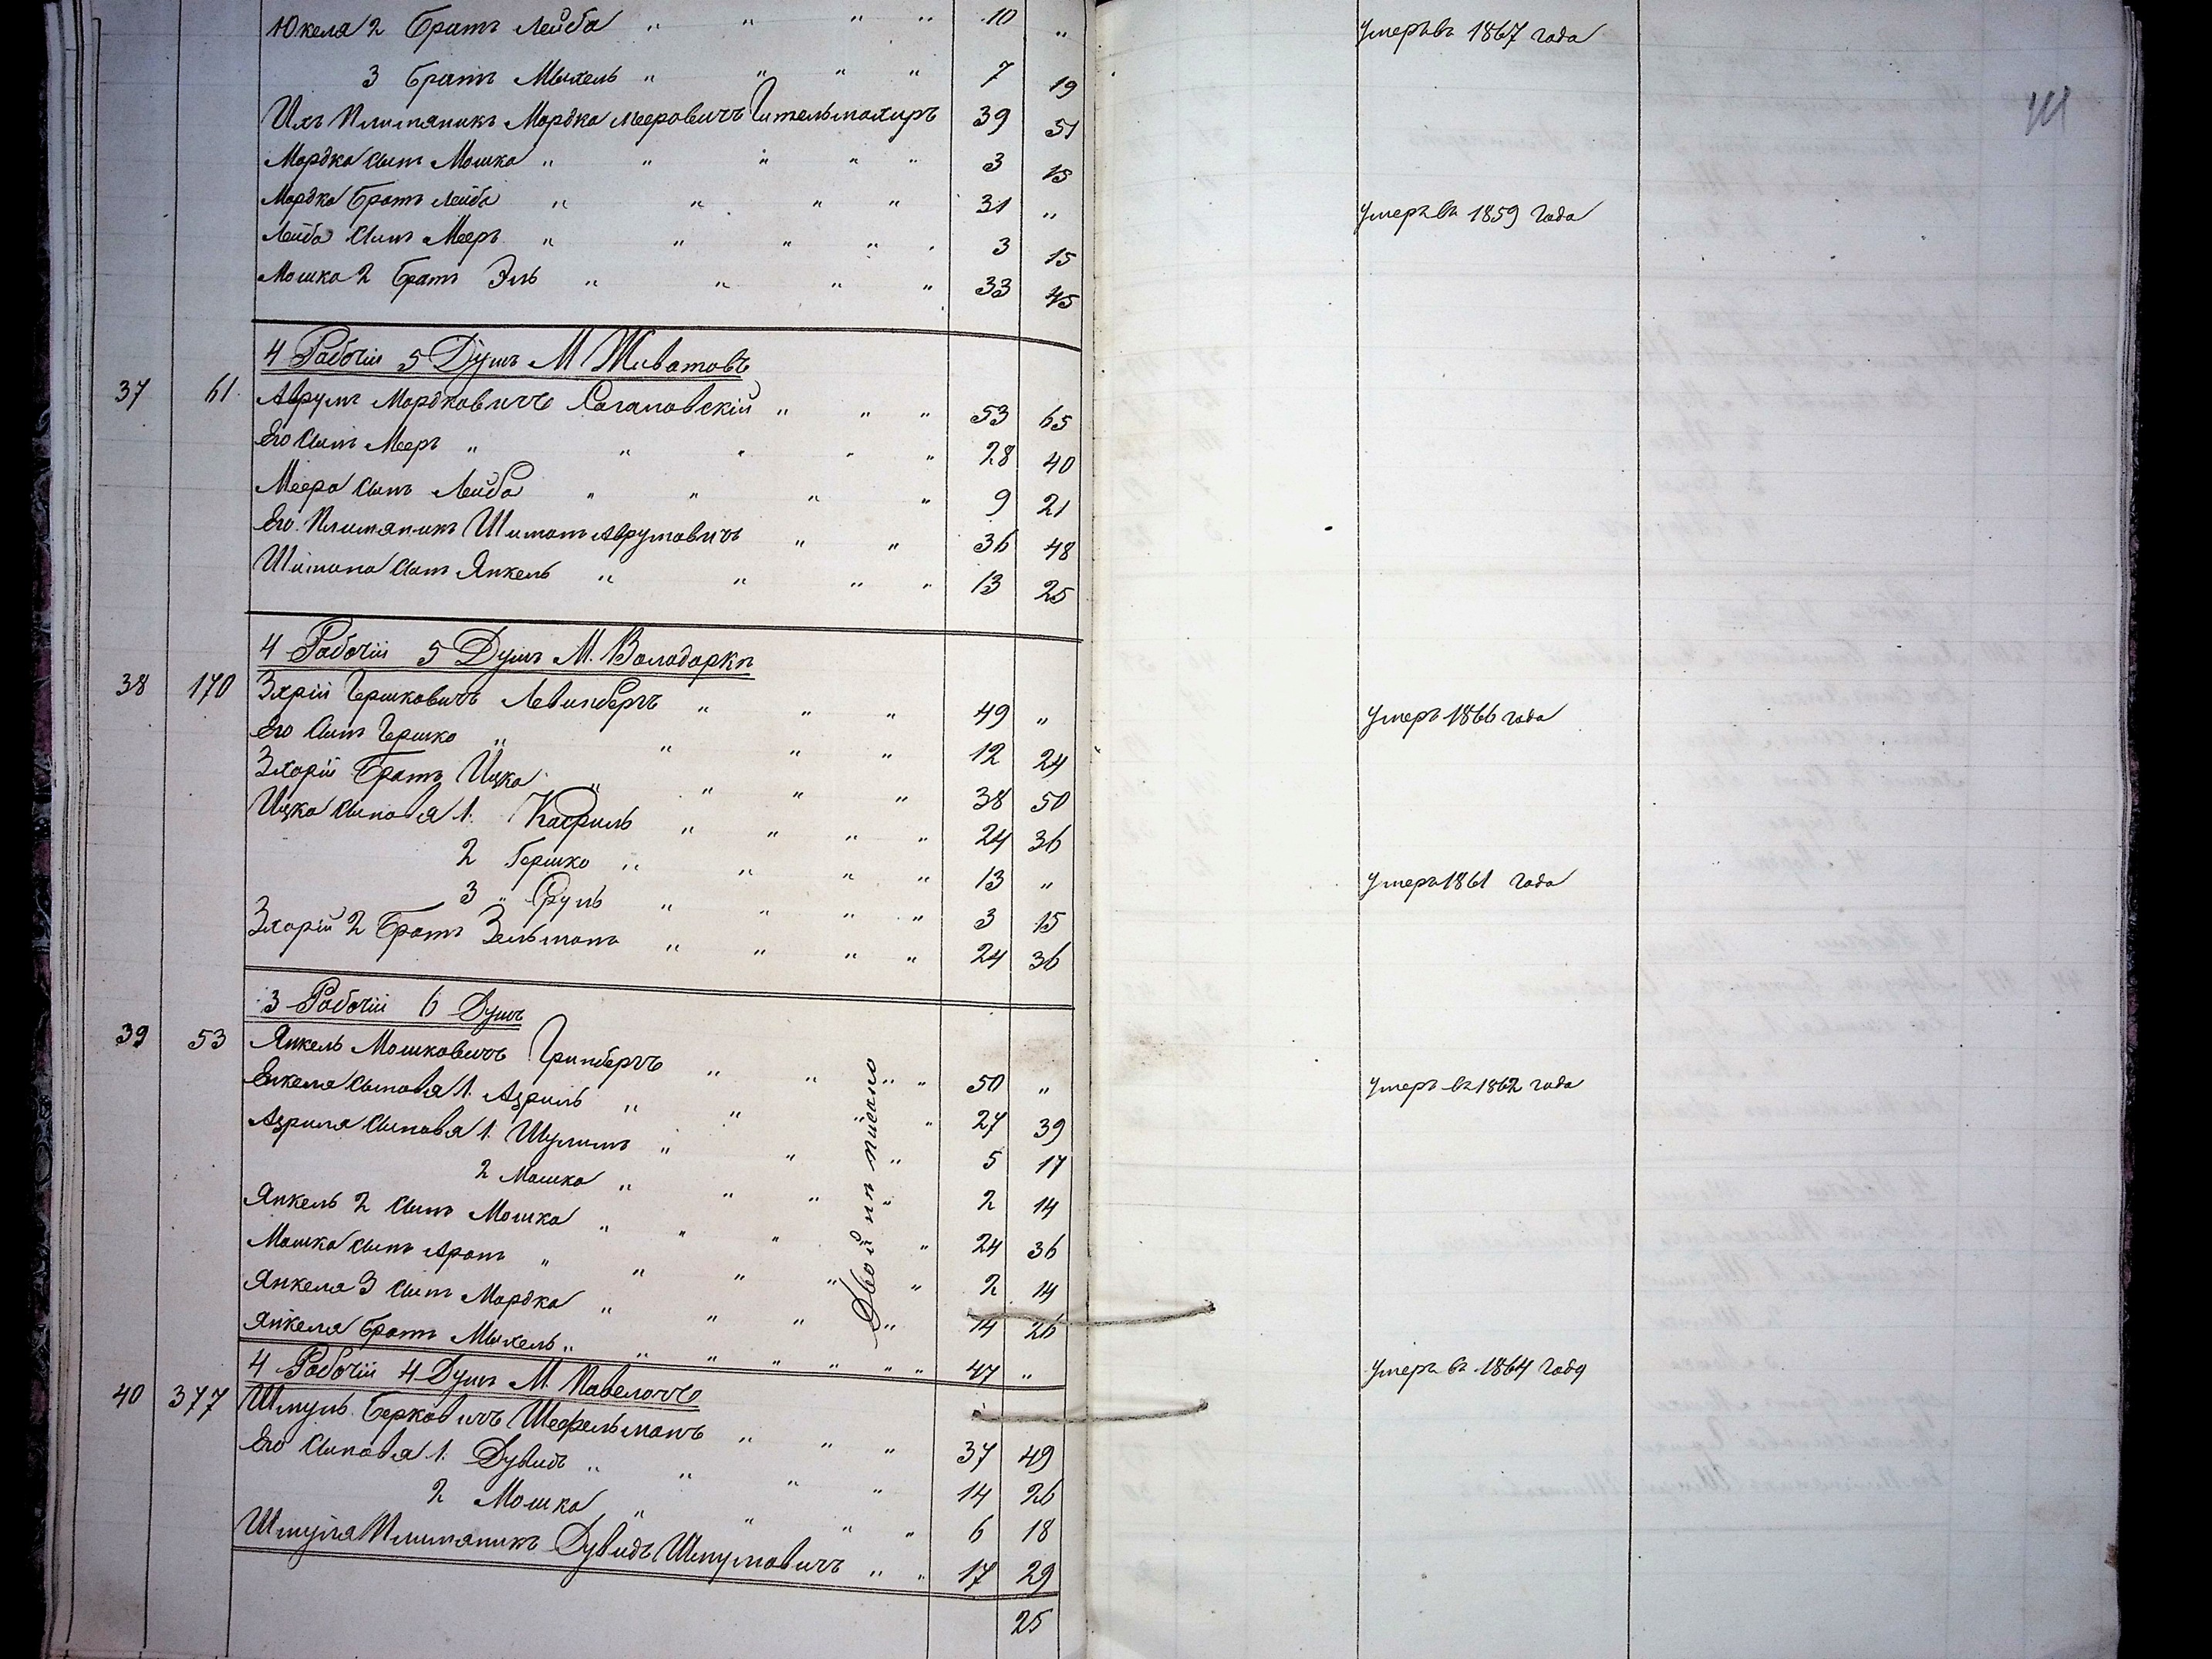 Юкеля 2 Братъ Лейба " " " " 10 " Умеръ въ 1867 года
3 Братъ Мыхель " " " " 7 19
Ихъ Племяникъ Мордка Мееровичъ 39 51
Мордка Сынъ Мошка " " " " " 3 15
Мордка Братъ Лейба " " " " 31 " Умеръ въ 1859 Года
Лейба Сынъ Мееръ " " " " " 3 15
Мошка 2 Братъ Эль " " " " 33 45
4 Рабочiи 5 Душъ М Животовъ
37 61 Аврумъ Мордковичъ Сагановскiй " " " 53 65
Его Сынъ Мееръ " " " " " 28 40
Меера Сынъ Лейба " " " " 9 21
Его Племяникъ Шимонъ Аврумовичъ " " 36 48
Шимона Сынъ Янкель " " " " 13 25
4 Рабочiи 5 Душъ М. Володарки
38 170 Зхрiй Гершковичъ Левинбергъ " " " 49 " Умеръ 1866 года
Его Сынъ Гершко " " " " 12 24
Зхарiй Братъ Ицка " " " " 38 50
Ицка Сыновья 1. Касриль " " " " 24 36
2 Гершко " " " " 13 " Умеръ 1861 Года
3 " Сруль " " " " 3 15
Зхарiй 2 Братъ Зельманъ " " " " 24 36
3 Рабочiи 6 Душъ
39 53 Янкель Мошковичъ Гринбергъ " " " " 50 " Умеръ въ 1862 года
Енкеля Сыновья 1. Азриль " " " " 27 39
Азриля Сыновья 1. Шулимъ " " " 5 17
2 Мошка " " " " 2 14
Янкель 2 Сынъ Мошка " " " " 24 36
Мошка Сынъ Аронъ " " " " " 2 14
Янкеля 3 Сынъ Мордка " " " " 14 26
Янкеля Братъ Мыхель " " " " " " " 47 " Умеръ въ 1864 году
Двойнѣ писано
4 Рабочiи 4 Душъ М. Паволочъ
40 377 Шмуль Берковичъ Шефельманъ " " " 37 49
Его Сыновья 1. Дувидъ " " " " 14 26
2 Мошка " " " " 6 18
Шмуля Племяникъ Дувидъ Шмулювичъ " " 17 29
25